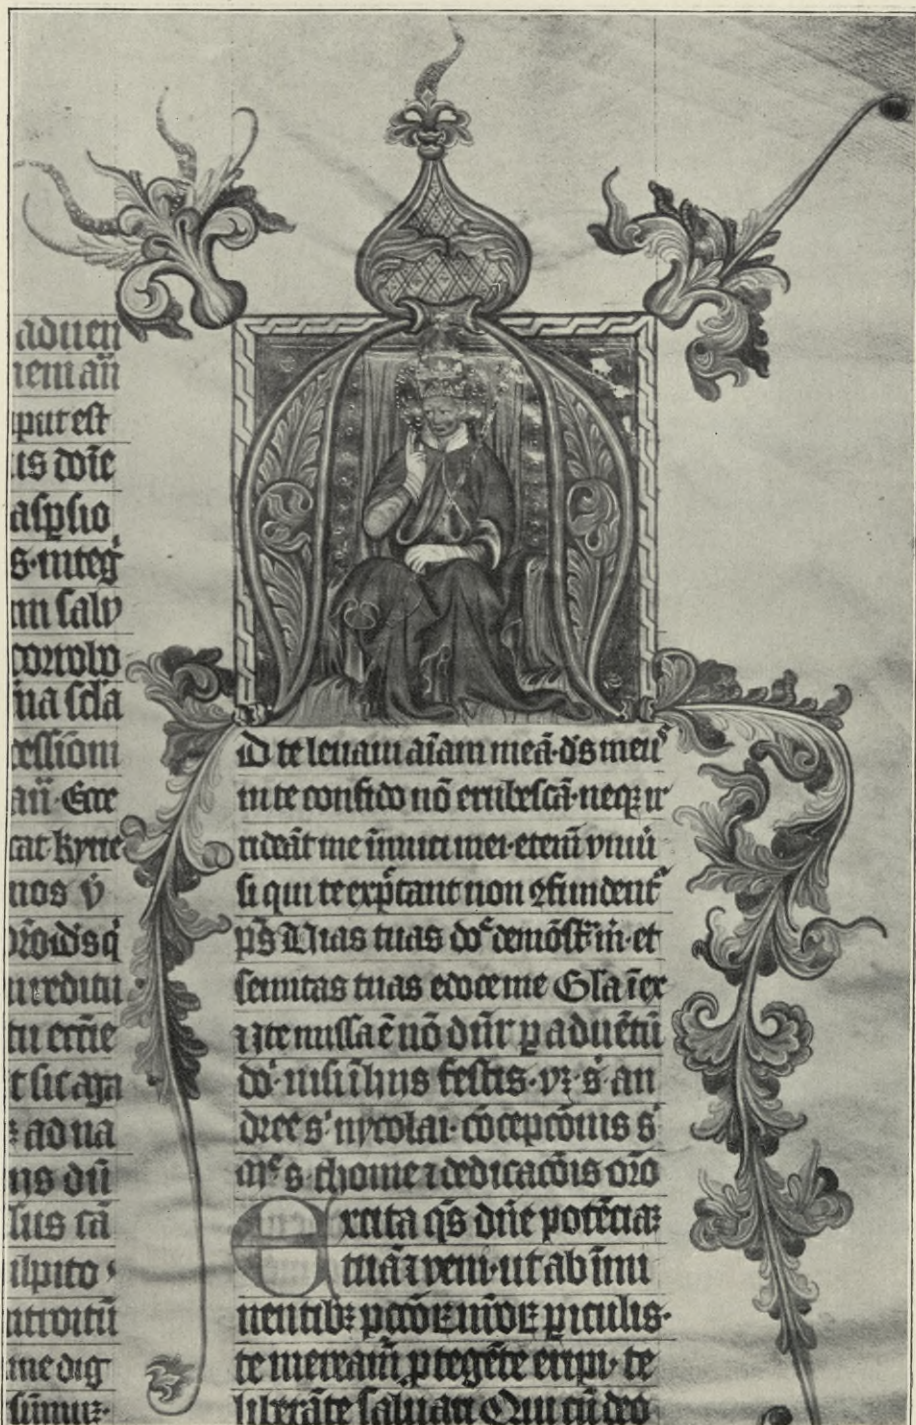 aduen
ueni añ
put est
us doïe
aspsio
s·integ
m salu
cortolo
ña scla
cessiom
añ· Ecce
cat kyrie
nos ỹ
orōidsq
u reditu
tu eccïe
t sicaga
ad na
us dū
lus cā
ulpito·
utroitū
me dig
sumus·
D te leuaui aīam meā·ds meus
in te confido nō erubescā·neqz ir
rideāt me īimici mei·etenī vniū
si qui te exptant non ꝯfundent
ps Vias tuas do demōstr m·et
semitas tuas edoce me Gla ī ex
⁊ Ite missa ē nō dnr p aduētū
do· nisi ī hiis festis· vz· s· an
dree s· nycolai· cōcepcōnis s
me s thome ⁊ dedicacōis orō
Excita qs dne potēciaꝫ
tuā ⁊ veni·ut ab īmi
nentibꝫ pccōꝝ nrōꝝ piculis·
te meream ptegēte eripi· te
liberāte saluari Qui cū deo